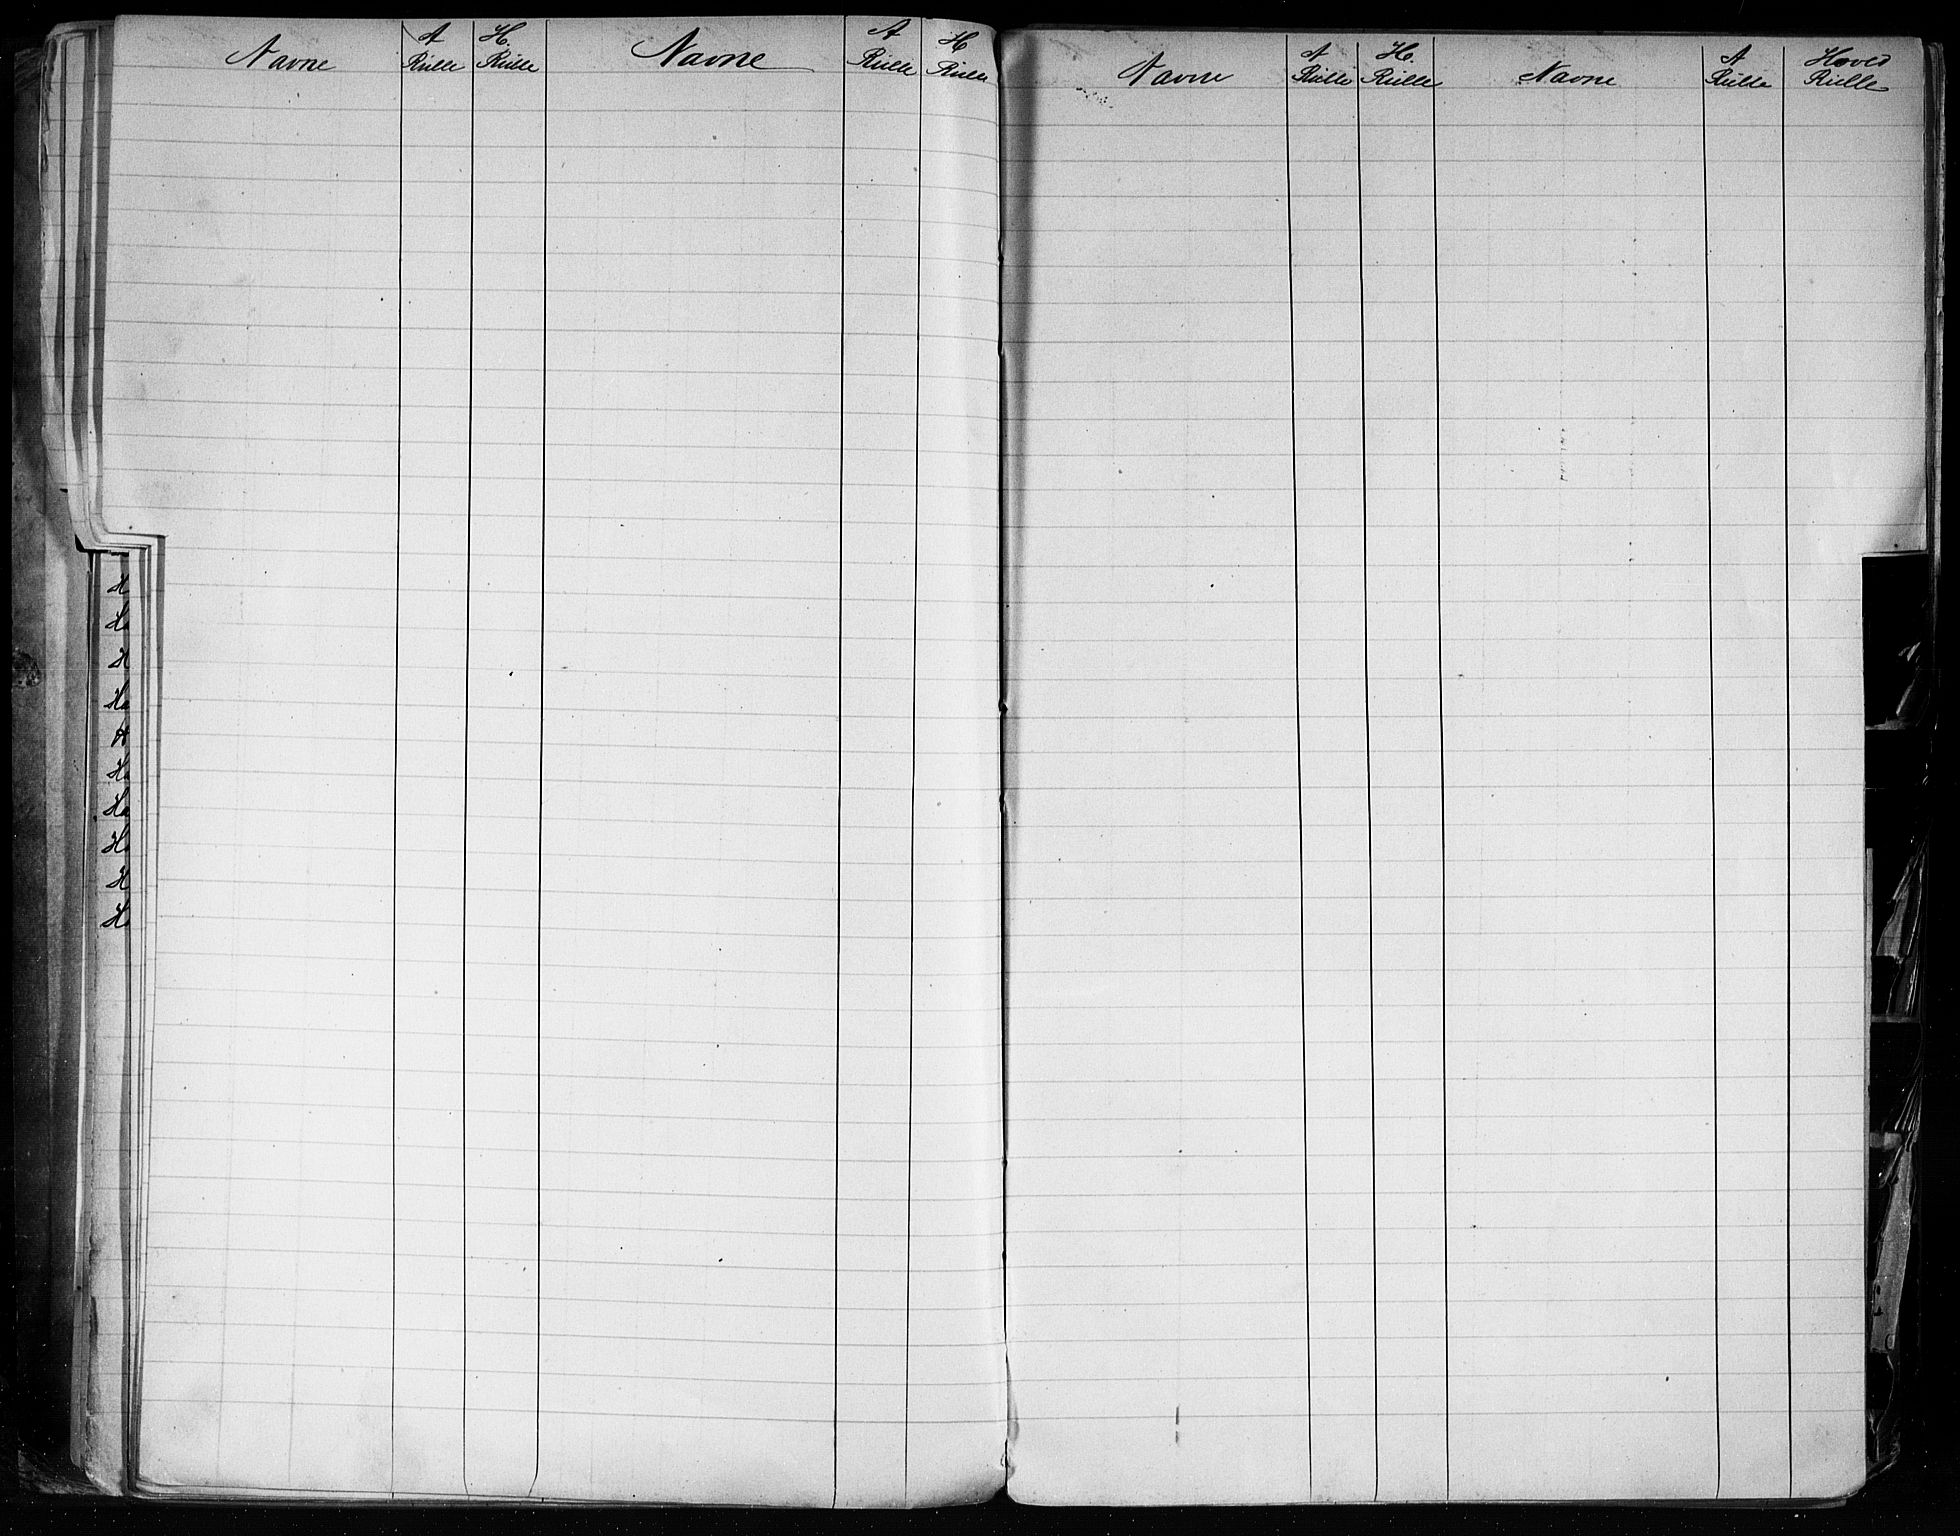 Navne A Rulle H. Rulle Navne A Rulle H Rulle
Navne A Rulle H. Rulle Navne A Rulle Hoved Rulle
H
Ha
H
Ha
H
Ha
Ha
Ha
H
Ha